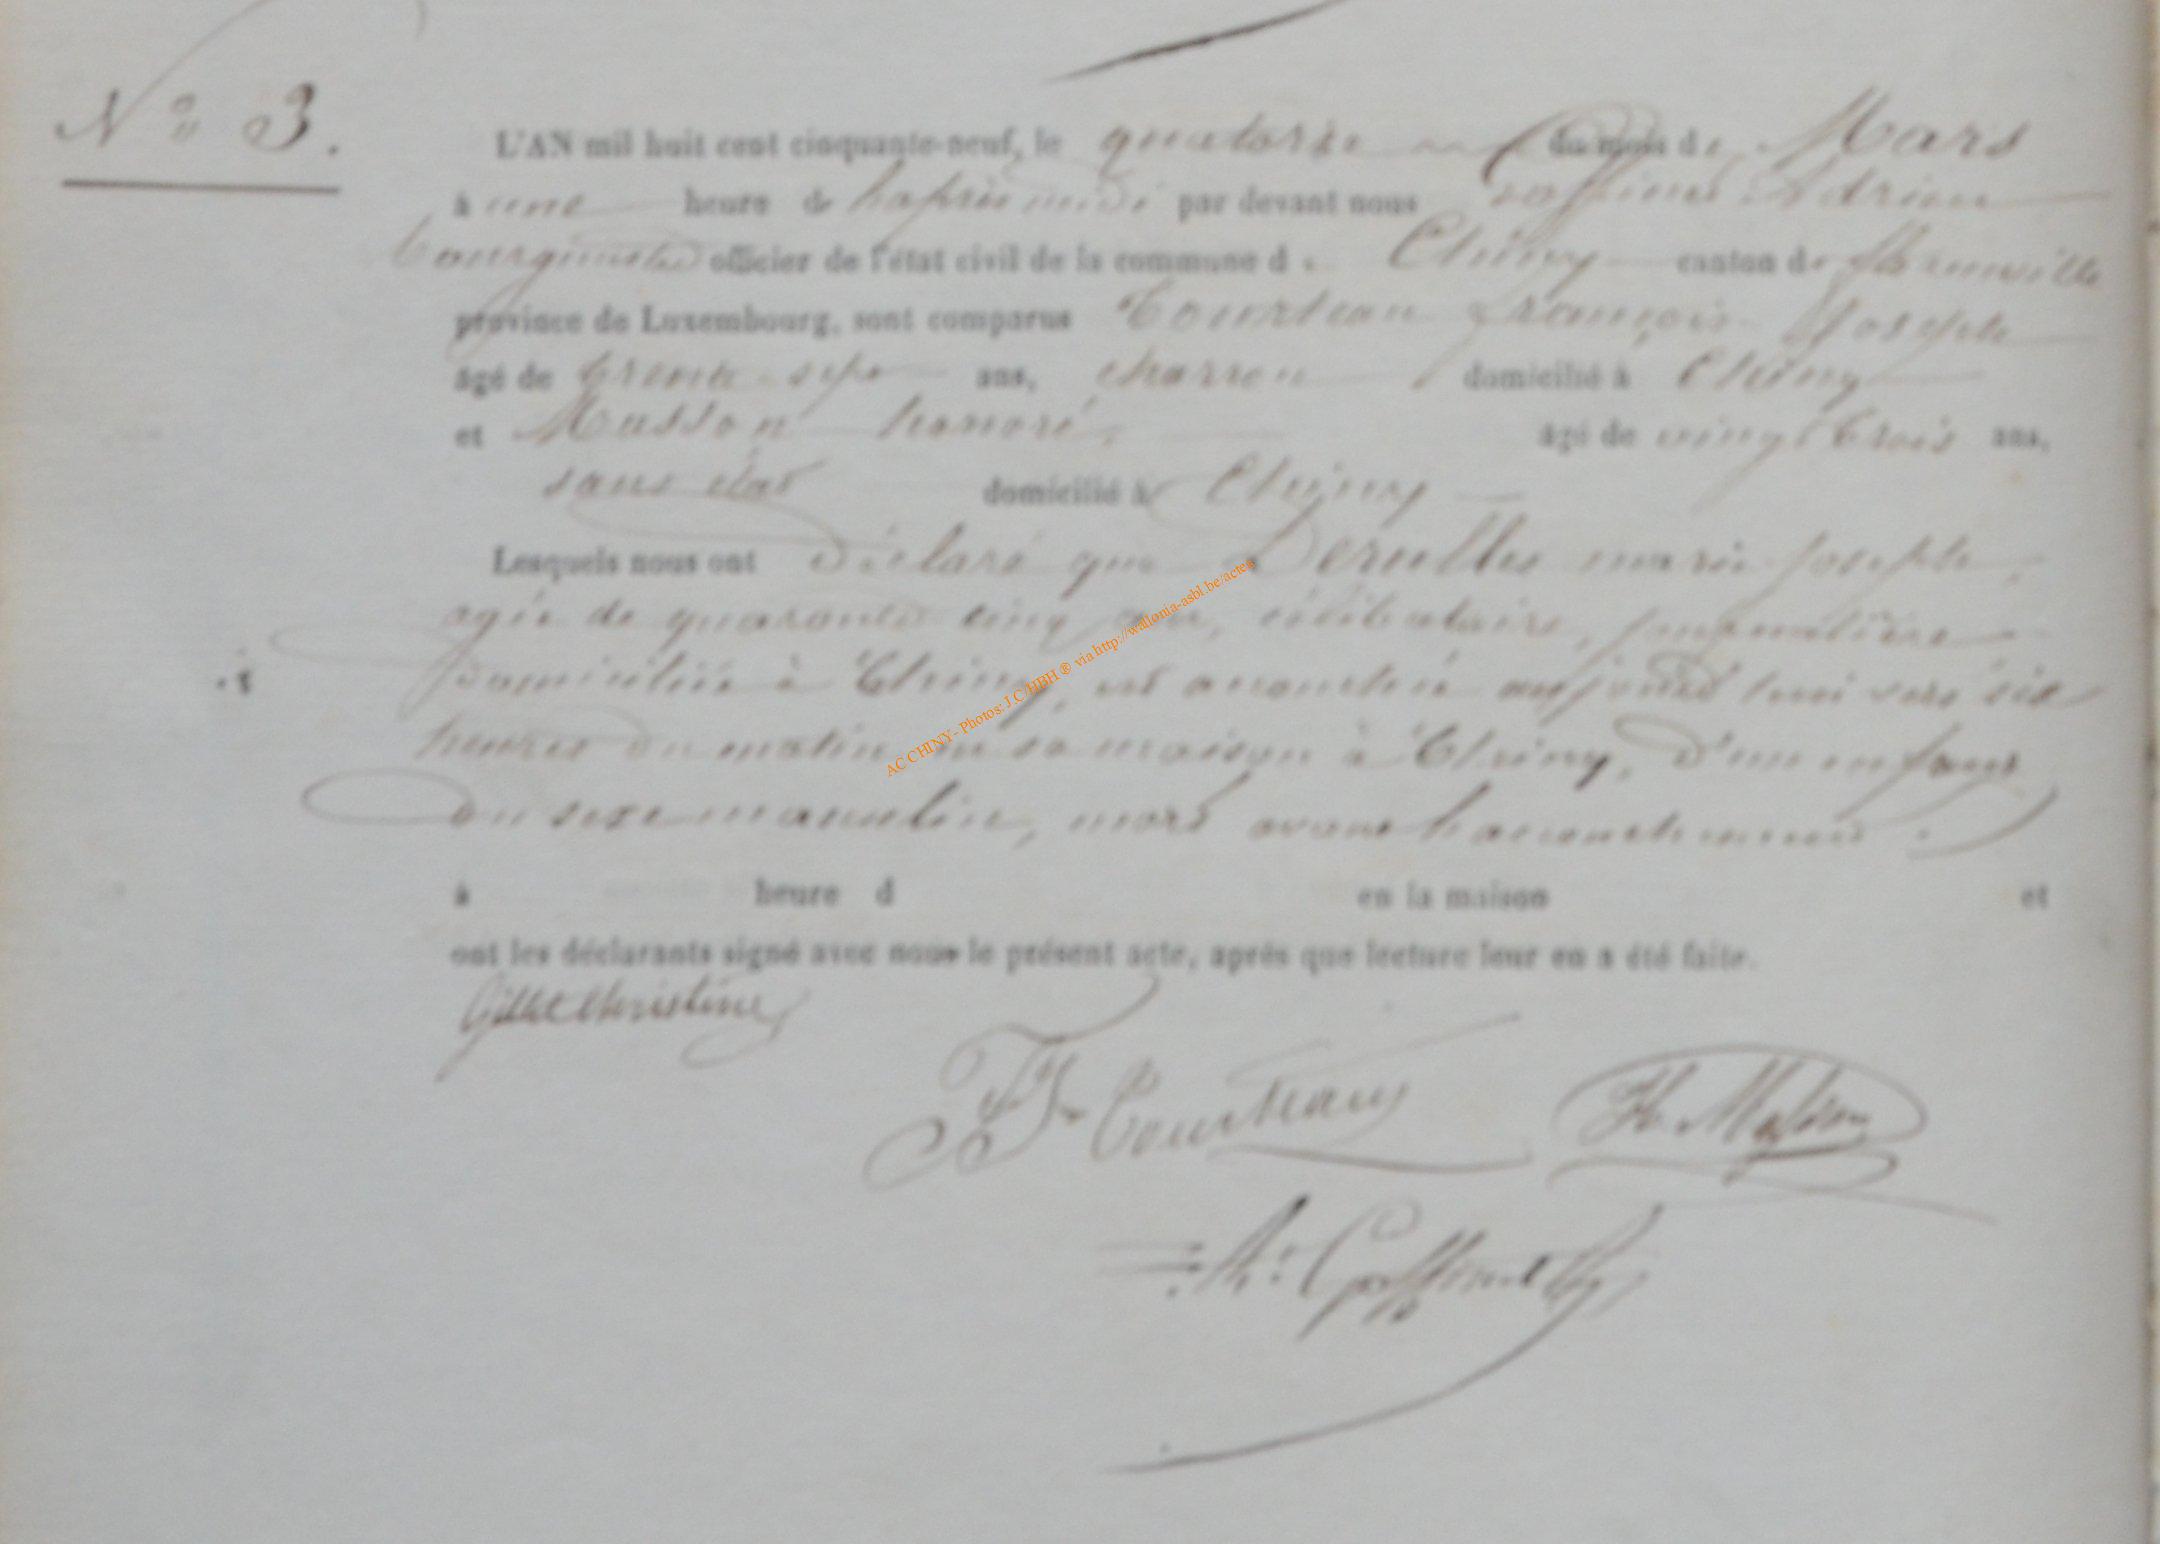 N° 3.
L'AN mil huit cent cinquante-neuf, le quatorze du mois de Mars
à une heure de l'après midi par devant nous Goffinet Adrien
bourgmestre officier de l'état civil de la commune de Chiny canton de florenville
province de Luxembourg, sont comparus Courteau françois Joseph
âgé de trente-sept ans, charron domicilié à Chiny
et Masson honoré, âgé de vingt trois ans,
sans état domicilié à Chiny
Lesquels nous ont déclaré que marie Joseph,
agée de quarante cinq ans, célibataire, journalière
domiciliée à Chiny, est accouchée aujourd'hui vers six
heures du matin en sa maison à Chiny, d'un enfant
du sexe masculin, mort avant l'accouchement.
à heure d en la maison et
ont les déclarants signé avec nous le présent acte, après que lecture leur en a été faite.
Gillet Christine
Courteaux H. Masson
Goffinet
AC CHINY - Photos: J.C/HBH ® via http://wallonia-asbl.be/actes